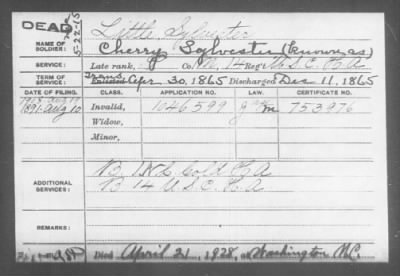 DEAD
5-22-15
Little, Sylvester
NAME OF SOLDIER: Cherry Sylvester (known as)
SERVICE: Late rank, P Co. M, 14 Reg't U.S.C.H.A
TERM OF SERVICE: Trans Enlisted Apr 30, 1865 Discharged Dec 11, 1865
DATE OF FILING. CLASS. APPLICATION NO. LAW. CERTIFICATE NO.
1891-Aug 10 Invalid, 1046599 753976
Widow,
Minor,
ADDITIONAL SERVICES: B 1 N.C. Cold H.A
B 14 U.S.C.H.A
REMARKS:
Died April 21, 1928, at Washington N.C.